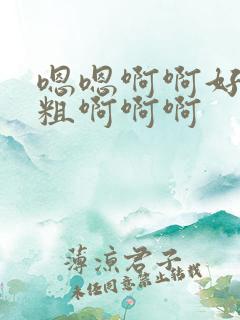 嗯嗯啊啊好
粗啊啊啊
薄凉君子
未经同意禁止转载